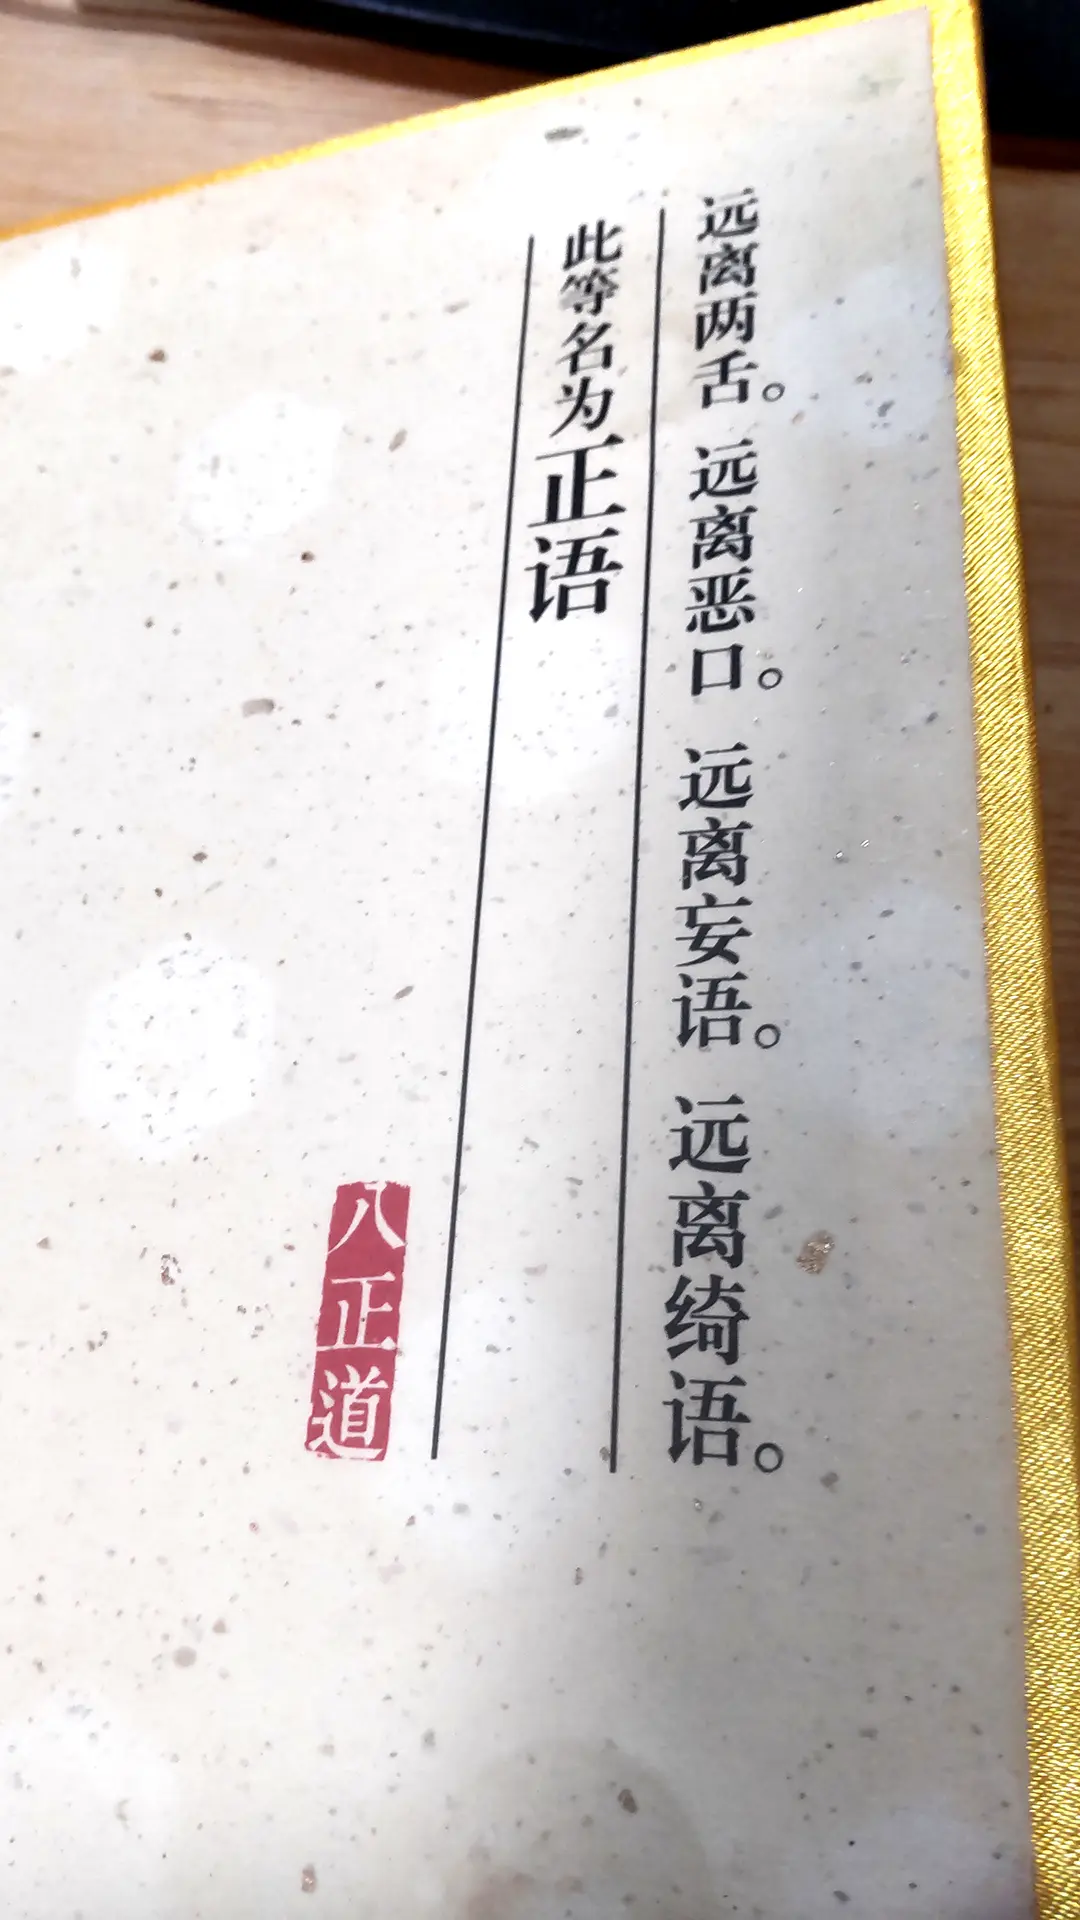 远离两舌。远离恶口。远离妄语。远离绮语。
此等名为正语
八正道